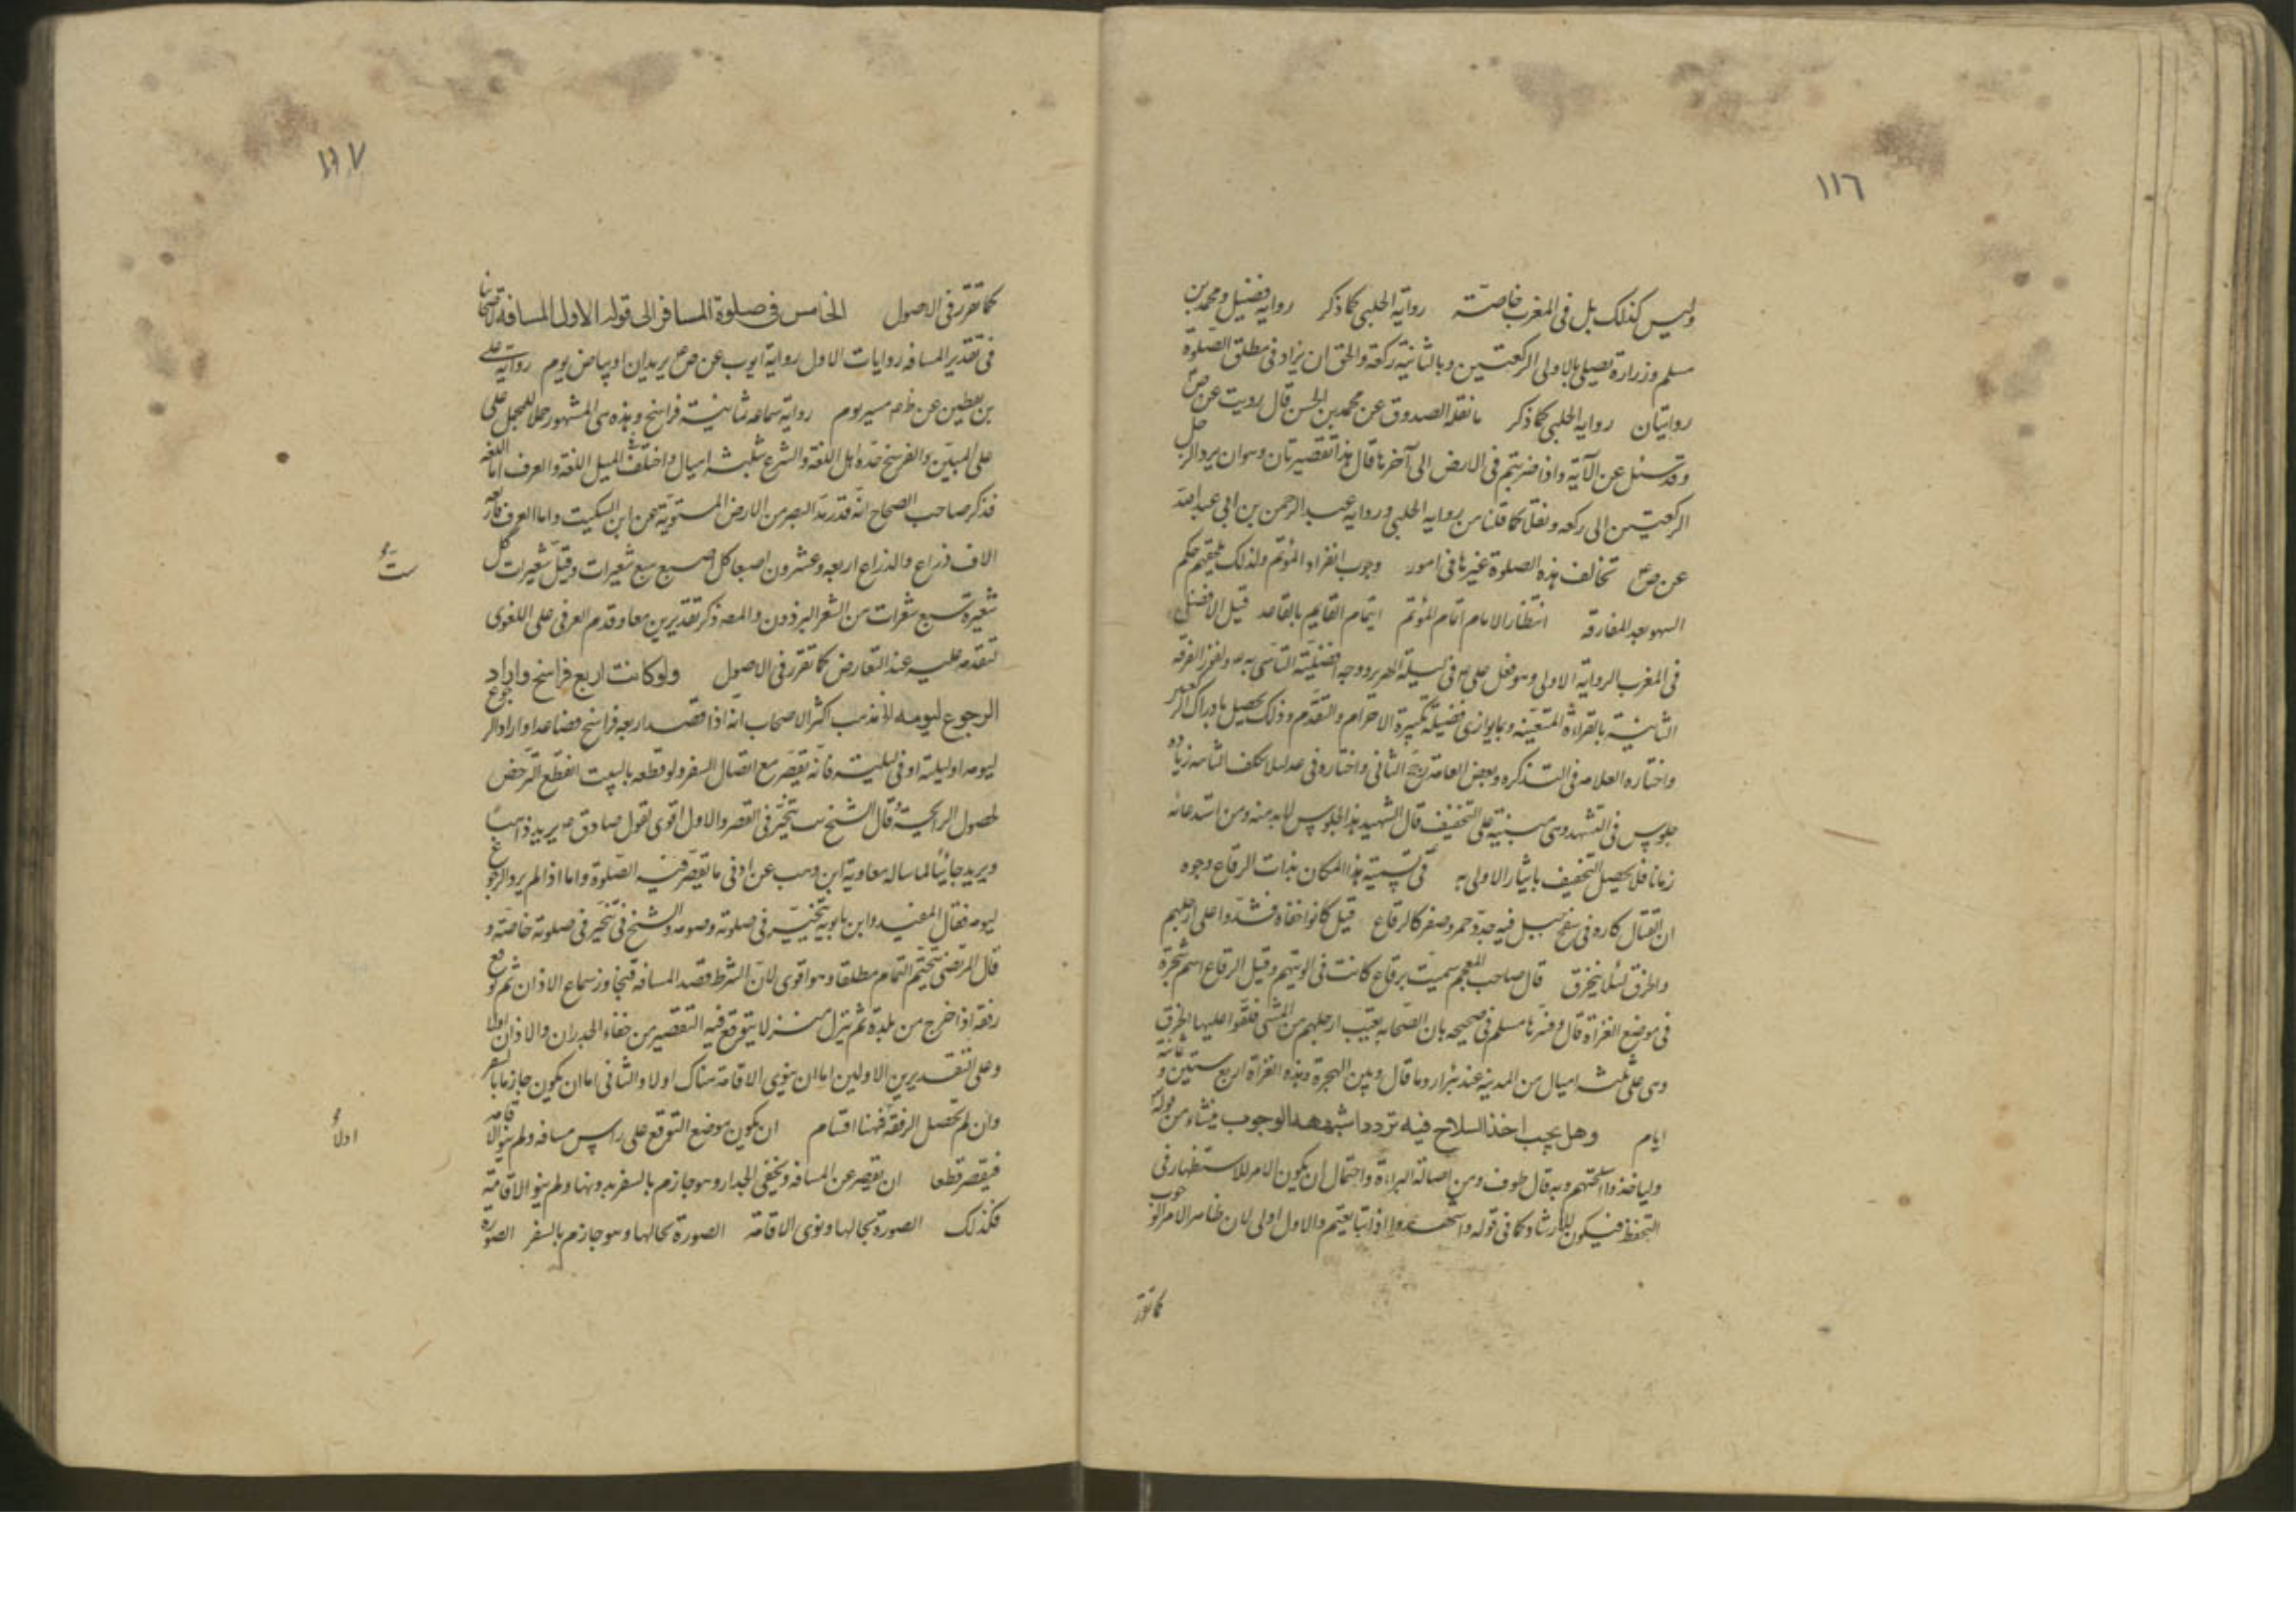 ١١٦
وليس كذلك بل في المغرب خاصّة رواية الحلبي كما ذكر رواية فضيل ومحمد بن
مسلم وزرارة يصلي بالاولى الركعتين وبالثانية ركعة والحق ان يزاد في مطلق الصّلوة
روايتان رواية الحلبي كما ذكر ما نقله الصدوق عن محمد بن الحسن قال رويت عن ص
وقد سئل عن الآية واذا ضربتم في الارض الى آخرها قال هذا تقصير ثان وهو ان يرد الرجل
الركعتين الى ركعه ونقلا كما قلنا من رواية الحلبي ورواية عبد الرحمن بن ابي عبد الله
عن ص ع تخالف هذه الصلوة غيرها في امور وجوب انفراد المؤتم ولذلك حكم
السهو بعد المفارقة انتظار الامام اتمام المؤتم ايتمام القايم بالقاعد قيل الافضل
في المغرب الرواية الاولى وهو فعل علي ع في ليلة الهرير ووجه افضليّة التاسّى به ع ولفوز الفرقة
الثانية بالقراءة المتعيّنه وبما يوازى فضيلة تكبيرة الاحرام والتقدم وذلك يحصل بادراك اكثر
واختاره العلامه في التذكره وبعض العامة رجّح الثاني واختاره في عد لئلا تكلف الثانية زيادة
جلوس في التشهد وهى مبنية على التخفيف قال الشهيد هذا الجلوس لا بد منه ومن استدعائه
زمانا فلا يحصل التخفيف بايثار الاولى به في تسمية هذا المكان بذات الرقاع وجوه
ان القتال كان في سفح جبل فيه جدد حمر وصفر كالرقاع قيل كانوا حفاة فشدّوا على ارجلهم
والخرق لئلا يتخرق قال صاحب المعجم سميت برقاع كانت في الويتهم وقيل الرقاع اسم شجرة
في موضع الغزاة قال وفسرها مسلم في صحيحه بان الصحابه نقبت ارجلهم من المشي فلفّوا عليها الخرق
وهي على ثلثة اميال من المدينة عند بئر اروما قال وبين الهجرة وهذه الغزاة اربع سنين وثمانية
ايام وهل يجب اخذ السلاح فيه تردد اشبهه الوجوب ينشاء من قوله
ولياخذوا اسلحتهم وبه قال طوف ومن اصالة البراءة واحتمال ان يكون الامر للاستظهار في
التحفظ فيكون للارشاد كما في قوله واشهدوا اذا تبايعتم والاول اولى لان ظاهر الامر الوجوب
كما تقرر
١١٧
كما تقرر في الاصول الخامس في صلوة المسافر الى قوله الاول المسافة لاصحابنا
في تقدير المسافه روايات الاول رواية ايوب عن ص ع بريدان او بياض يوم رواية علي
بن يقطين عن ظم مسير يوم رواية سماعه ثمانية فراسخ وهذه هي المشهور حملا للمجمل على
على المبيّن والفرسخ حدّه اهل اللغة والشرع بثلثة اميال واختلف في الميل اللغة والعرف اما اللغة
فذكر صاحب الصحاح انه قدر مدّ البصر من الارض المستوية عن ابن السكيت واما العرف فاربعة
الاف ذراع والذراع اربعه وعشرون اصبعا كل اصبع سبع شعيرات وقيل شعيرات كل
ست
شعيرة سبع شعرات من الشعر البرذون والمصه ذكر تقديرين معا وقدم العرفي على اللغوى
لتقدمه عليه عند التعارض كما تقرر في الاصول ولو كانت اربع فراسخ واراد
الرجوع ليومه لان مذهب اكثر الاصحاب انه اذا قصد اربعه فراسخ فصاعدا واراد الرجوع
ليومه او ليلته او في ليلته فانه يقصّر مع اتصال السفر ولو قطعه بالمبيت انقطع الترخص
لحصول الراحية وقال الشيخ يتخيّر في القصر والاول اقوى لقول صادق ع بريد ذاهبا
وبريد جائيا لما ساله معاوية ابن وهب عن ادنى ما يقصّر فيه الصّلوة واما اذا لم يرد الرجوع
ليومه فقال المفيد وابن بابويه يتخيّر في صلوته وصومه والشيخ في يتخيّر في صلوته خاصّة و
قال المرتضى يتحتم التمام مطلقا وهو اقوى لان الشرط قصد المسافه فيتجاوز سماع الاذان ثم توقع
رفقه اذا خرج من بلدة ثم ينزل منزلا يتوقع فيه التقصير من خفاء الجدران والاذان اولا
وعلى التقديرين الاولين اما ان ينوى الاقامة هناك اولا والثاني اما ان يكون جازما بالسفر
وان لم تحصل الرفقة فهنا اقسام ان يكون موضع التوقع على راس مسافه ولم ينو الاقامة
اولا
فيقصر قطعا ان يقصر عن المسافه ويخفى الجدار وهو جازم بالسفر بدونها ولم ينو الاقامة
فكذلك الصورة بحالها ونوى الاقامة الصورة بحالها وهو جازم بالسفر الصورة